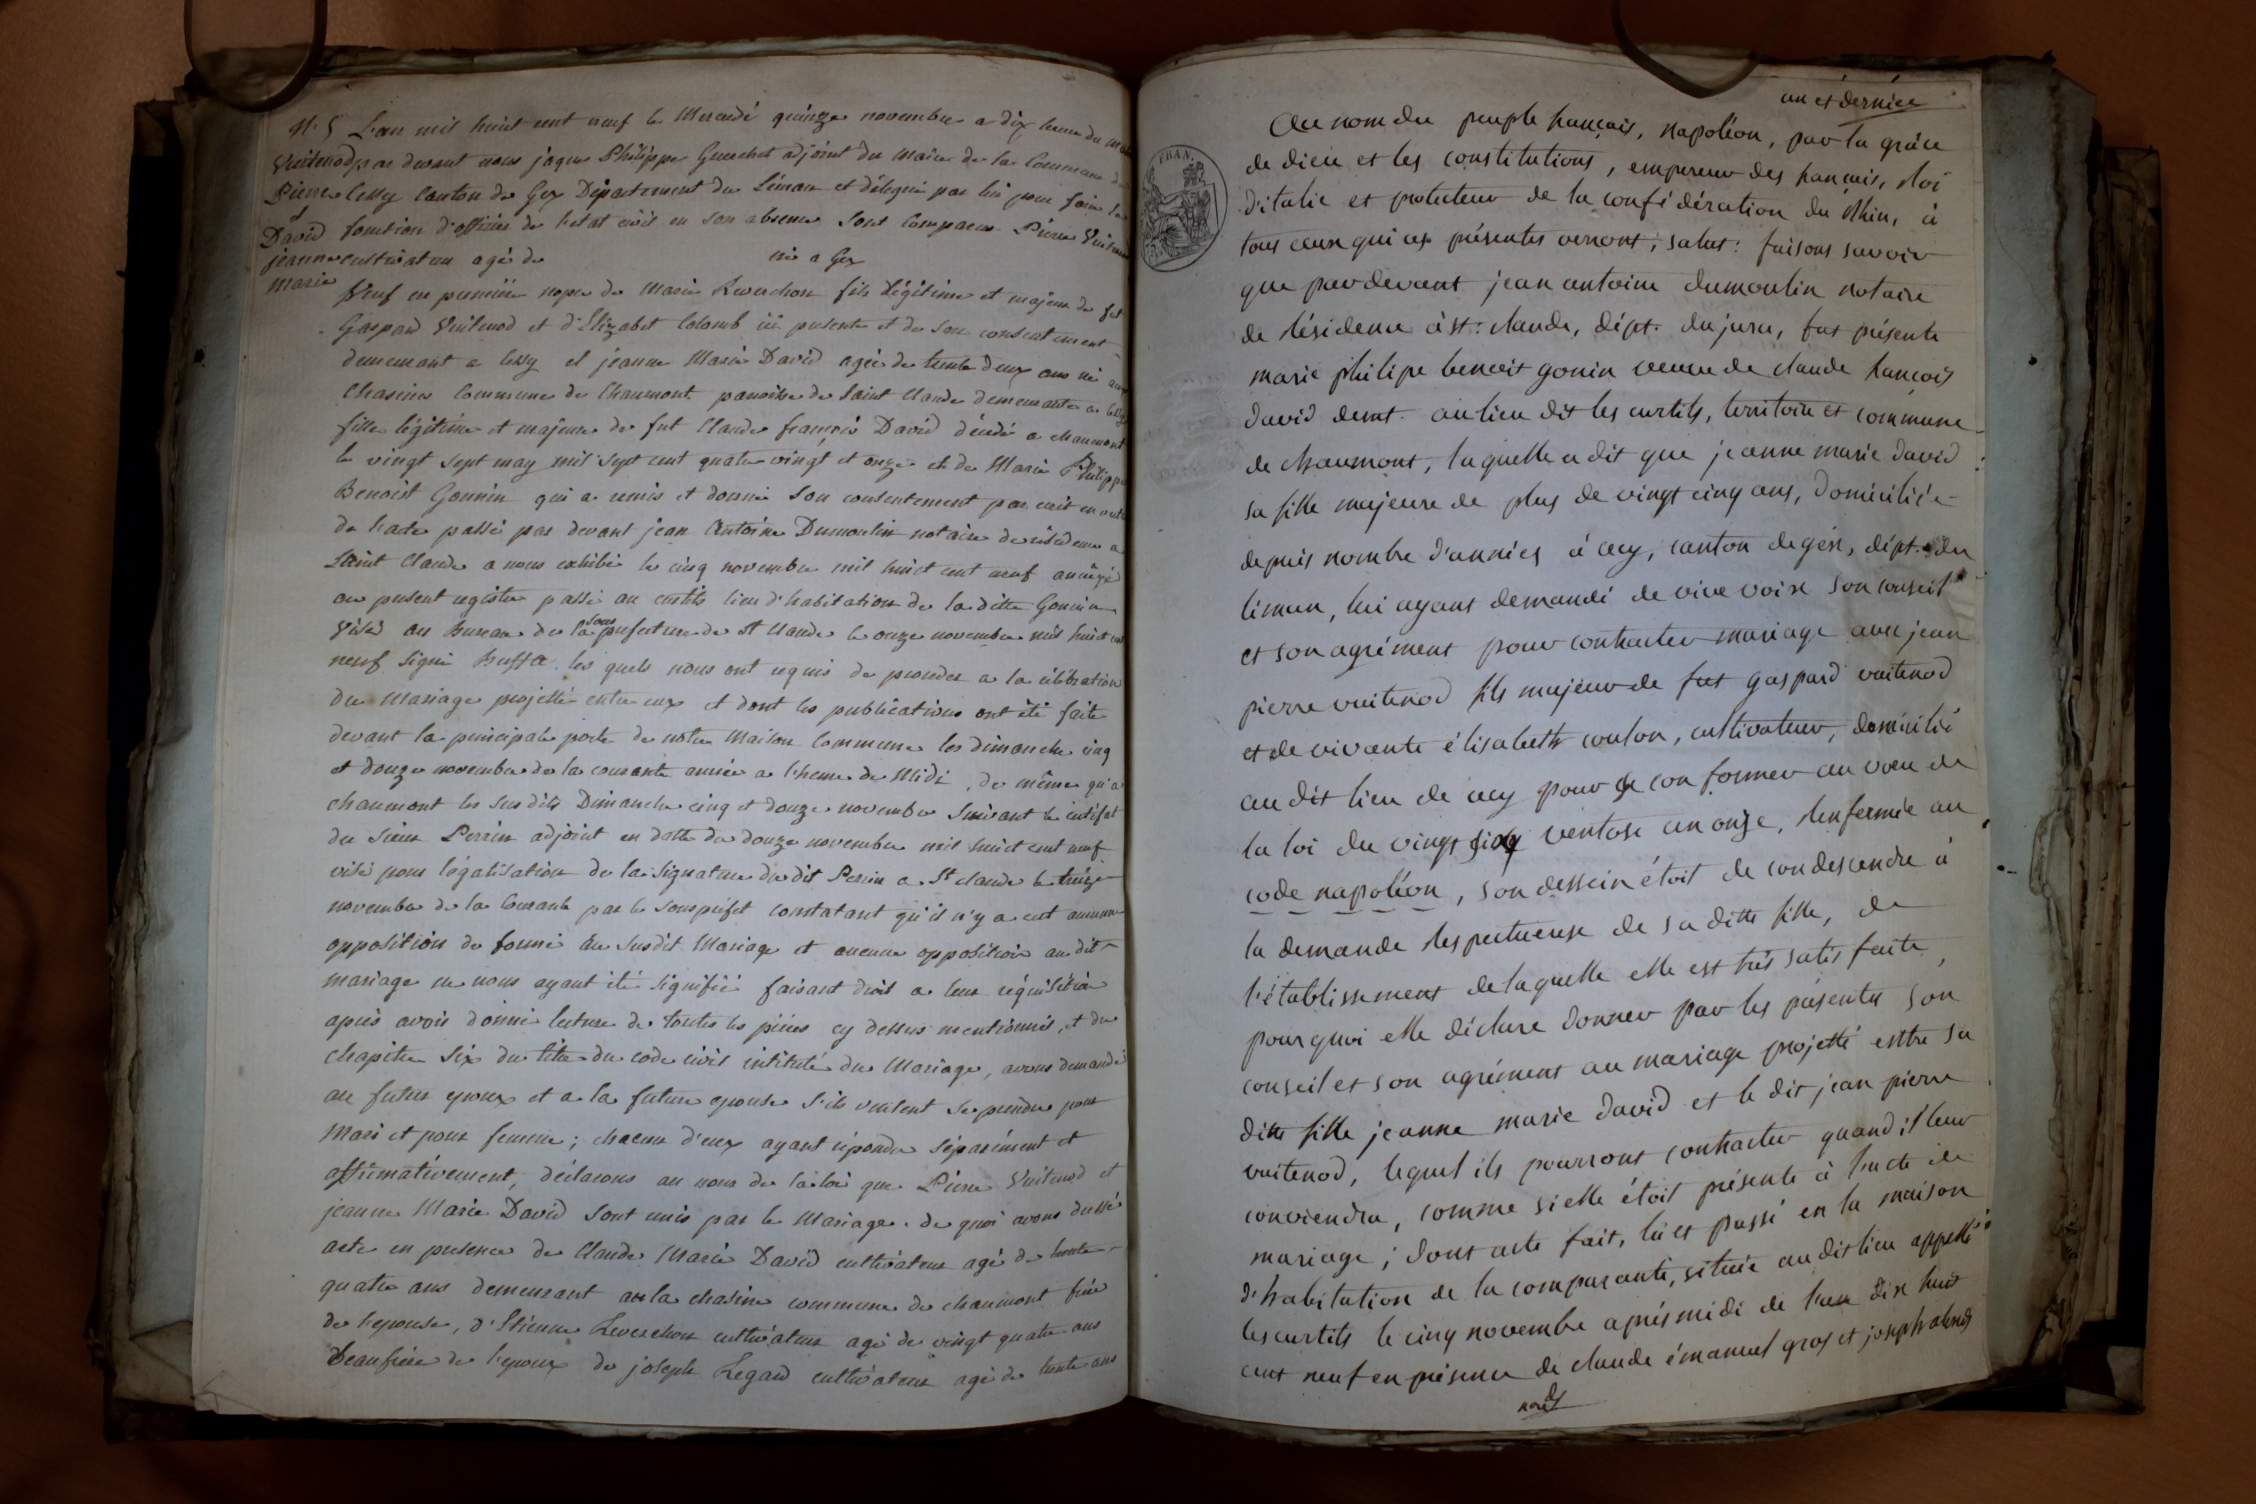 N. 5 L'an mil huict cent neuf le Mercredi quinze novembre a dix heure du
Vuitenod par devant nous jaque Philippe Gruechet adjoint du Maire de la Commune de
Pierre Cessy Canton de Gex Département du Léman et délégué par lui pour faire la
et
David fonction d'officier de l'etat civil en son absence Sont Comparus Pierre Vuitenod
jeanne cultivateur agé de né a Gex
marie
Veuf en premiere nopce de Marie Reverchon fils légitime et majeur de fut
Gaspard Vuitenod et d'Elizabet Colomb ici presente et de Son consentement
demeurant a Cessy et jeanne Marie David agée de trente deux ans né aux
Chasines Commune de Chaumont paroisse de Saint Claude demeurante a Cessy
fille légitime et majeure de fut Claude françois David décédé a chaumont
le vingt sept may mil sept cent quatre vingt et onze et de Marie Philippe
Benoist Gonnin qui a remis et donné Son consentement par
de l'acte passé par devant jean Antoine Dumoulin notaire de résidence a
Saint Claude a nous exhibé le cinq novembre mil huict cent neuf
au present registre passé au curtils lieu d'habitation de la ditte Gonnin
Visé au Bureau de la sous prefecture de St Claude le onze novembre mil huict cent
neuf signé les quels nous ont requis de proceder a la célébration
du Mariage projetté entre eux et dont les publications ont été faite
devant la principale porte de notre Maison Commune les dimanche cinq
et douze novembre de la courante année a l'heure de Midi, de même qu'a
chaumont les susdits Dimanche cinq et douze novembre Suivant le certifcat
du Sieur Perrin adjoint en datte du douze novembre mil huict cent neuf
visé pour légalisation de la Signature du dit Perrin a St claude le treize
novembre de la Courante par le Sousprefet constatant qu'il n'y a eut aucune
opposition de formé au Susdit Mariage et aucune opposition audit
mariage ne nous ayant été Signifiée faisant droit a leur réquisition
après avoir donné lecture de toutes les pièces cy dessus mentionnés, et du
chapitre Six du titre du code civil intitulé du Mariage, avons demandé
au futur epoux et a la future epouse s'ils veulent se prendre pour
Mari et pour femme ; chacun d'eux ayant répondu Séparément et
affirmativement, déclarons au nom de la loi que Pierre Vuitenod et
jeanne Marie David Sont unis par le Mariage. de quoi avons dressé
acte en presence de Claude Marie David cultivateur agé de trente
quatre ans demeurant a la chasine commune de chaumont frère
de l'epouse, d'Etienne Reverchon cultivateur agé de vingt quatre ans
Beaufrère de l'epoux de joseph Regard cultivateur agé de trente ans
un et dernier
FRAN.
Au nom du peuple français, napoléon, par la grâce
de dieu et les constitutions, empereur des français, Roi
d'italie et protecteur de la confédération du Rhin, à
tous ceux qui ces présentes verront, salut : faisons savoir
que pardevant jean antoine dumoulin notaire
de Résidence à st: claude, dépt. du jura, fut présente
marie philipe benoit gonin veuve de claude françois
david demt. au lieu dit les curtils, territoire et commune
de chaumont, laquelle a dit que jeanne marie david
sa fille majeure de plus de vingt cinq ans, domiciliée
depuis nombre d'années à cecy, canton de gex, dépt. du
liman, lui ayant demandé de vive voix son conseil
et son agrément pour contracter mariage avec jean
pierre vuitenod fils majeur de fut gaspard vuitenod
et de vivante élisabeth coulon, cultivateur, domicilié
au dit lieu de cecy pour se conformer au vœu de
la loi du vingt six ventose an onze, Renfermée au
code napoléon, son dessein étoit de condescendre à
la demande Respectueuse de sa ditte fille, de
l'établissement de laquelle elle est très satisfaite,
pourquoi elle déclare donner par les présentes son
conseil et son agrément au mariage projetté entre sa
ditte fille jeanne marie david et le dit jean pierre
vuitenod, lequel ils pourront contracter quand il leur
conviendra, comme si elle étoit présente à l'acte de
mariage ; dont acte fait, lû et passé en la maison
d'habitation de la comparante, située au dit lieu appellé
les curtils le cinq novembre après midi de l'an dix huit
cent neuf en présence de claude émanuel gros et joseph